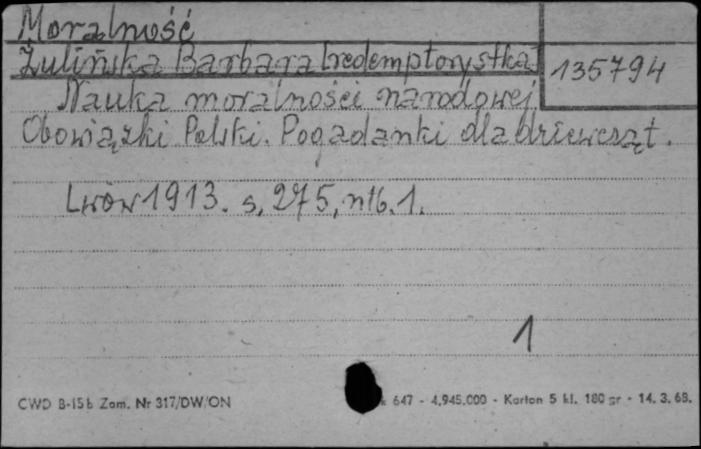 Moralność
Żulińska Barbara [redemptorystka]
135794
Nauka moralności narodowej
Obowiązki Polski. Pogadanki dla dziewcząt.
Lwów 1913. s. 275, ntb. 1.
1
CWD B-15b Zam. Nr 317/DW/ON 647 - 4.945.000 - Karton 5 kl. 180 gr - 14. 3. 68.